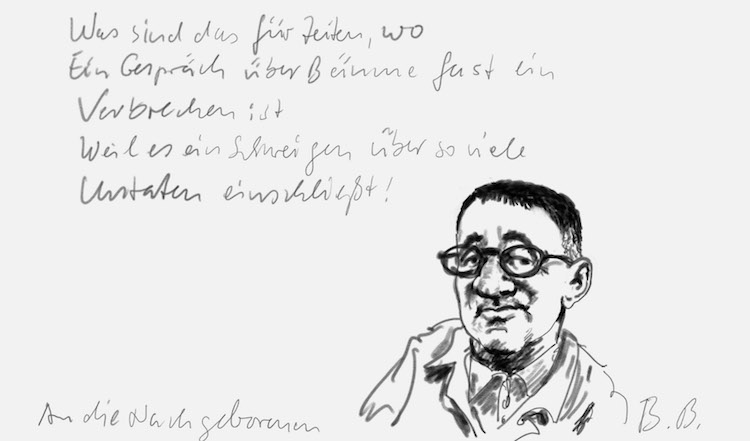 Was sind das für Zeiten, wo
Ein Gespräch über Bäume fast ein
Verbrechen ist
Weil es ein Schweigen über so viele
Untaten einschließt!
An die Nachgeborenen
B. B.